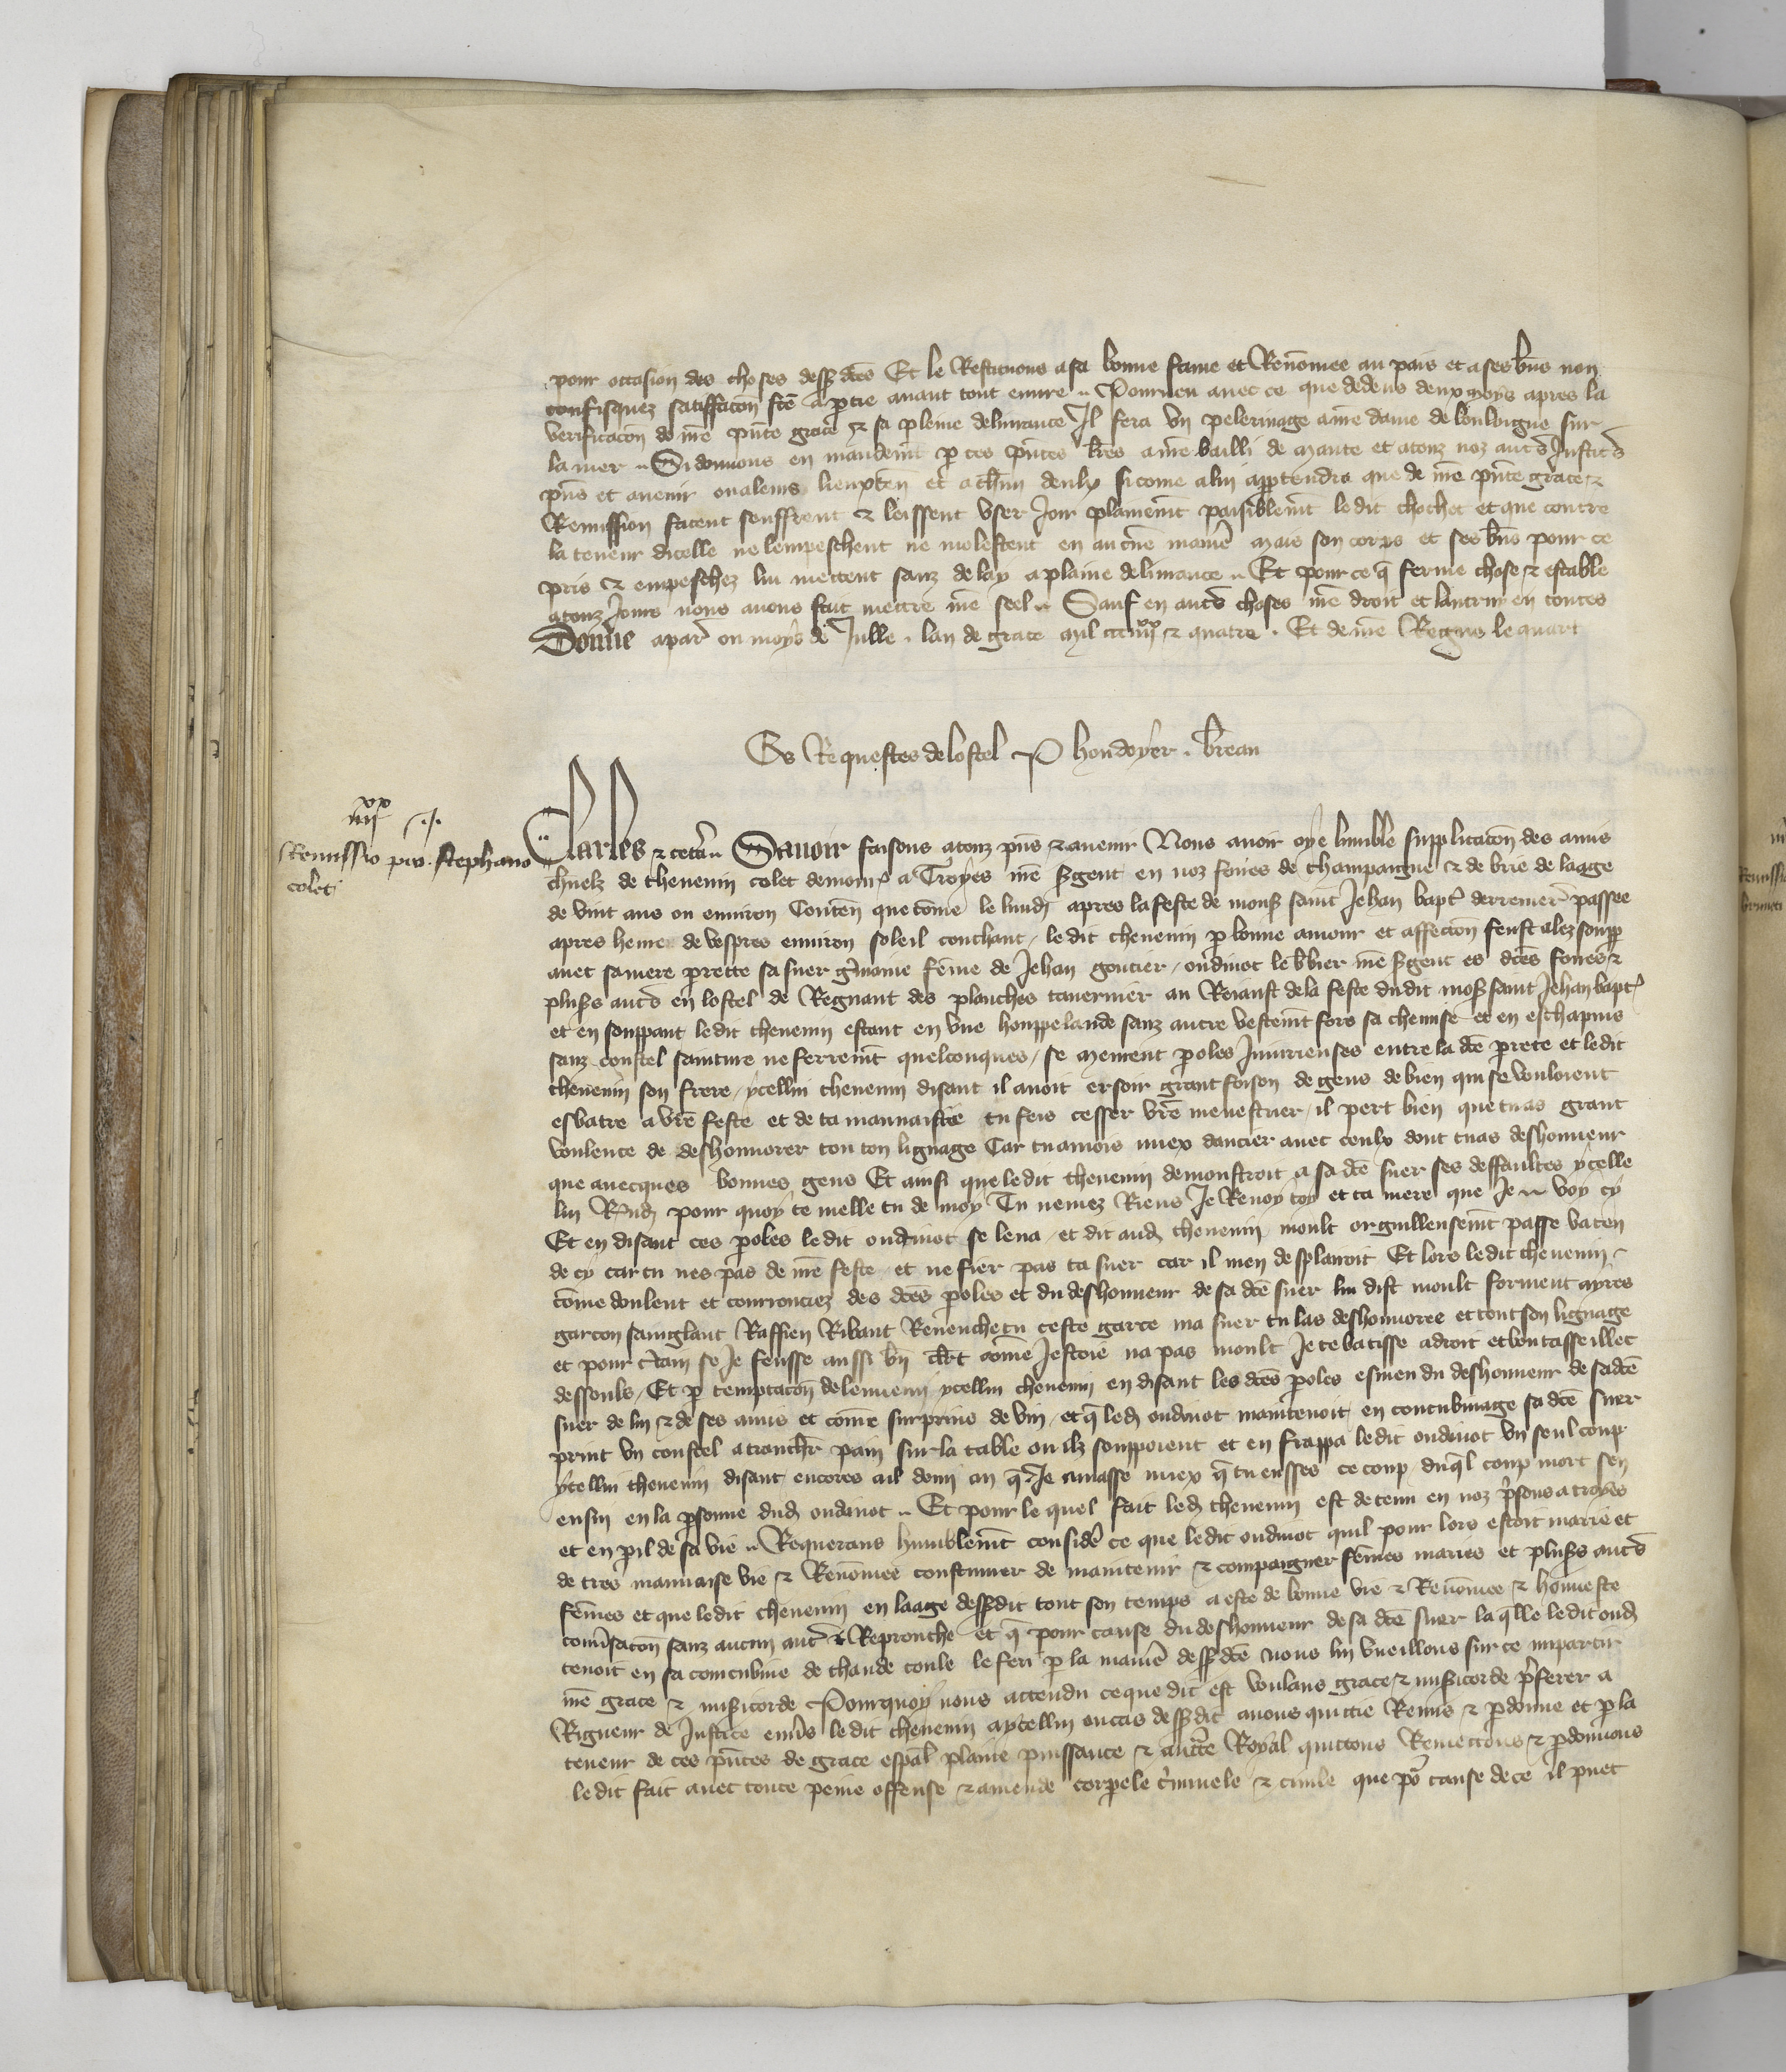 pour occasion des choses dessus dces Et le Restituons a sa bonne fame et Renomee au pais et a ses bns non
confisquez satiffacon fce a ptie avant tout euure .. Pourueu auec ce que dedens deux moys apres la
verificacon de nre pnte grace & sa pleine deliurance Il fera vn pelerinage a nre dame de bouloigne sur
la mer .. Si donnons en mandemt p ces pntes lres a nre bailli de Mante et a touz noz autres Justic's
pns et auenir ou a leurs lieuxten et a chun deulx si come a lui apptendra que de nre pnte grace &
Remission facent seuffrent & leissent vser Joir plainemt paisiblemt le dit chochet et que contre
la teneur dicelle ne lempeschent ne molestent en aucune maniere mais son corps et ses bns pour ce
pris & empeschez lui mettent sanz delay a plaine deliurance .. Et pour ce q ferme chose & estable
a touz Jours nous auons fait mettre nre seel .. Sauf en autres choses nre droit et lautruy en toutes
Donne a paris ou moys de Jullet . lan de grace mil ccc iiiixx & quatre . Et de nre Regne le quart
Es Requestes de lostel P hondoyer . brean
iiiixx .i.
Remissio pro . stephano
colet
Charles & cetera .. Sauoir faisons a touz pns & auenir Nous auoir oye lumble supplicacon des amis
charnelz de theuenin colet demour a Troyes nre sgent en noz foires de champaigne & de brie de laage
de vint ans ou enuiron Conten que come le lundi apres la feste de mons saint Jehan bapt derrenier passee
apres heure de vespres enuiron soleil couchant / le dit theuenin p bonne amour et affeccon feust alez soupp
auec sa mere prette sa suer gmaine feme de Jehan goucier / oudinot le bbier nre sgent es dces foires &
plusrs autres en lostel de Regnaut des planches tauernier au Reianst de la feste du dit mons saint Jehan bapt
et en souppant le dit theuenin estant en vne houppelande sanz autre vestemt fors sa chemise et en eschapins
sanz coustel sainture ne ferremt quelconques / se murent poles Iniurieuses entre la dce prete et le dit
theuenin son frere / ycellui theuenin disant il auoit ersoir grant foison de gens de bien qui se vouloient
esbatre a vre feste et de ta mauuaistie tu feis cesser vre menestrier / il pert bien que tu as grant
voulente de deshonnorer tou ton lignage Car tu amois miex dancier auec ceulx dont tu as deshonneur
que auecques bonnes gens Et ainsi que le dit theuenin demonstroit a sa dce suer ses deffaultes ycelle
lui Rnd pour quoy te melle tu de moy Tu nemez Riens Je Renoy toy et ta mere que Je .. voy cy
Et en disant ces poles le dit oudinot se leua / et dit aud theuenin moult orguilleusemt passe va ten
de cy car tu nes pas de nre feste / et ne fier pas ta suer car il men desplairoit Et lors le dit theuenin
come doulent et courrouciez des dces poles et du deshonneur de sa dce suer lui dist moult forment ayres
garcon sainglant Raffien Ribaut Reuenche tu ceste garce ma suer tu las deshonnoree et tout son lignage
et pour ctain se Je feusse aussi bn come Jestoie na pas moult Je te batisse a droit et boutasse illec
dessoulz / Et p temptacon de lennemi ycellui theuenin en disant les dces poles esmeu du deshonneur de sa dce
suer de lui & de ses amis et come surprins de vin / et q led oudinot maintenoit en concubinage sa dce suer
print vn coustel a trancher pain sur la table ou ilz souppoient et en frappa le dit oudinot vn seul coup
ycellui theuenin disant encores ail demi an q Je amasse miex q tu eusses ce coup / duql coup mort sen
ensui en la psonne dud oudinot .. Et pour le quel fait led theuenin est detenu en noz prisons a troyes
et en pil de sa vie .. Requerans humblemt consider ce que le dit oudinot quil pour lors estoit marie et
de tres mauuaise vie & Renomee coustumier de maintenir & compaigner femes maries et plusrs autres
femes et que le dit theuenin en laage dessusdit tout son temps a este de bonne vie & Renomee & honneste
conusacon sanz aucun autre Reprouche et q pour cause du deshonneur de sa dce suer la qlle le dit oud
tenoit en sa concubine de chaude coule le feri p la maniere dessus dce nous lui vueillons sur ce impartir
nre grace & misicorde Pourquoy nous attendu ce que dit est voulans grace & misicorde preferer a
Rigueur de Justice enuers le dit theuenin a ycellui ou cas dessusdit auons quictie Remis & pdonne et p la
teneur de ces pntes de grace espal plaine puissance & auctte Royal quictons Remettons & pdonnons
le dit fait auec toute peine offense & amende corpele criminele & ciuile que por cause de ce il puet